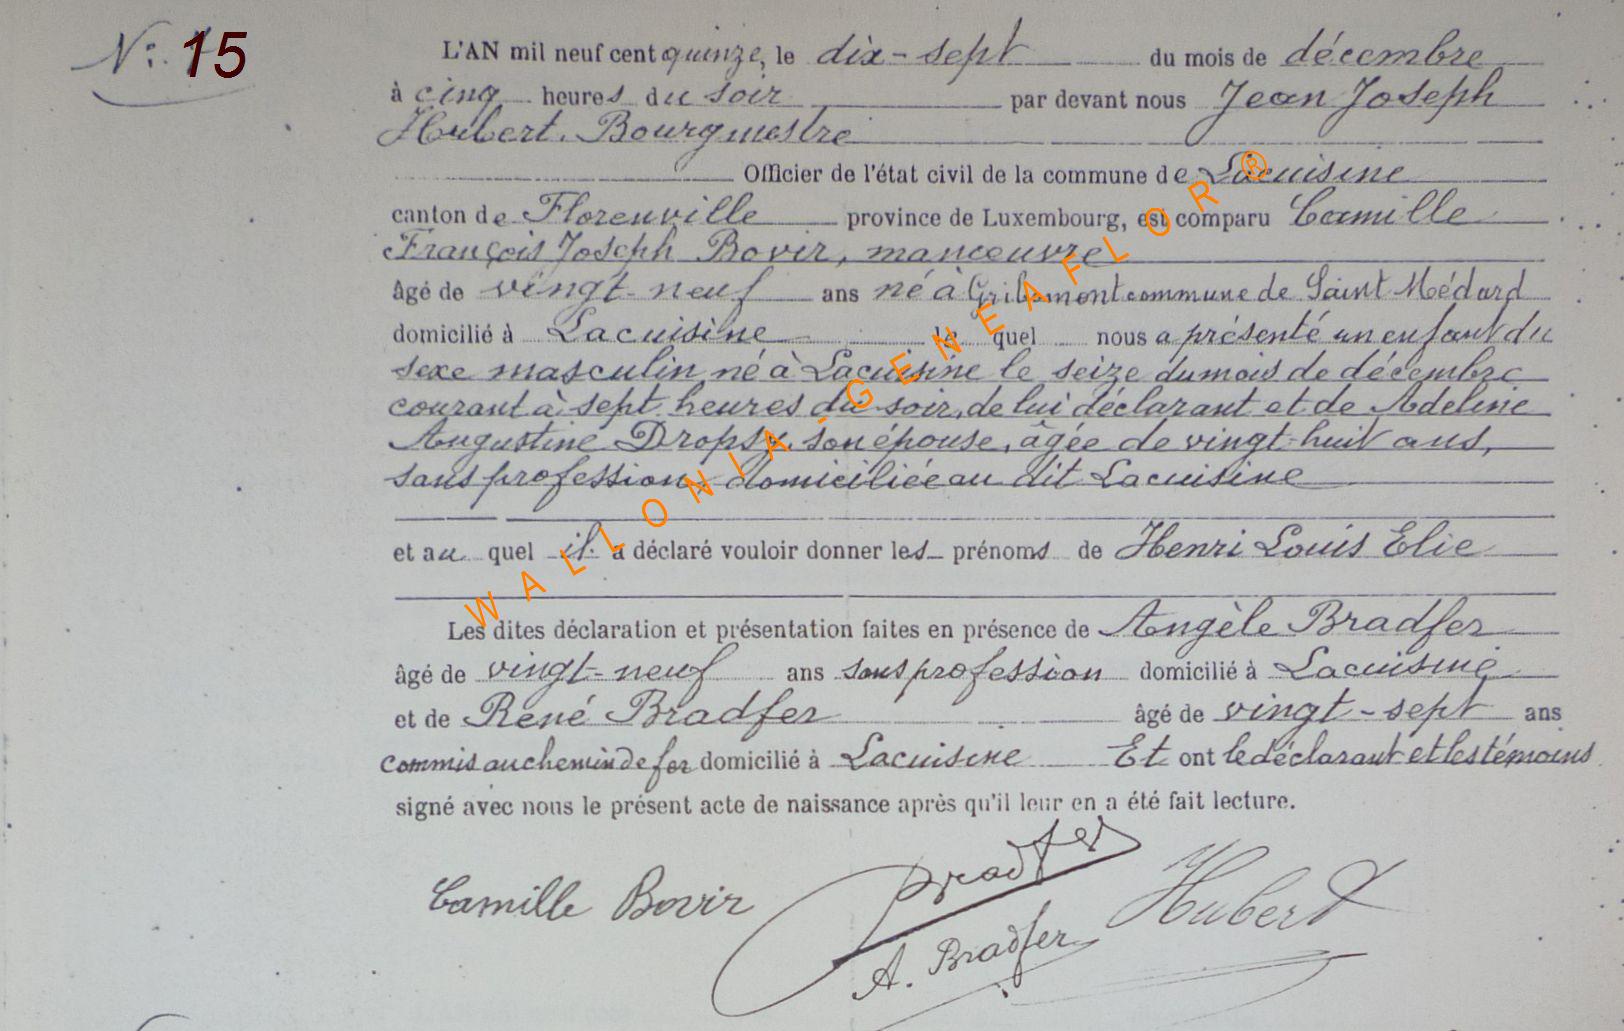 N: 15
L'AN mil neuf cent quinze, le dix-sept du mois de décembre
à cinq heures du soir par devant nous Jean Joseph
Hubert. Bourgmestre
Officier de l'état civil de la commune de Lacuisine
canton de Florenville province de Luxembourg, est comparu Camille
François Joseph Bovir, manœuvre
âgé de vingt-neuf ans né à Gribomont commune de Saint Médard
domicilié à Lacuisine le quel nous a présenté un enfant du
sexe masculin né à Lacuisine le seize du mois de décembre
courant à sept heures du soir, de lui déclarant et de Adeline
Augustine Dropsy, son épouse, âgée de vingt-huit ans,
sans profession, domiciliée au dit Lacuisine
et au quel il a déclaré vouloir donner les prénoms de Henri Louis Elie
Les dites déclaration et présentation faites en présence de Angèle Bradfer
âgé de vingt-neuf ans sans profession domicilié à Lacuisine
et de René Bradfer âgé de vingt-sept ans
commis au chemin de fer domicilié à Lacuisine Et ont le déclarant et les témoins
signé avec nous le présent acte de naissance après qu'il leur en a été fait lecture.
Camille Bovir Bradfer Hubert
A. Bradfer
WALLONIA-GENEAFLOR ®